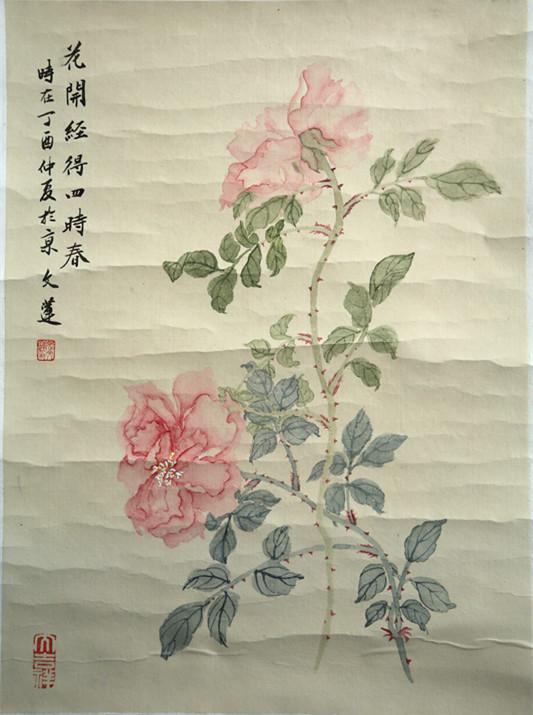 花開經得四時春
時在丁酉仲夏於京 文蓮
大吉祥